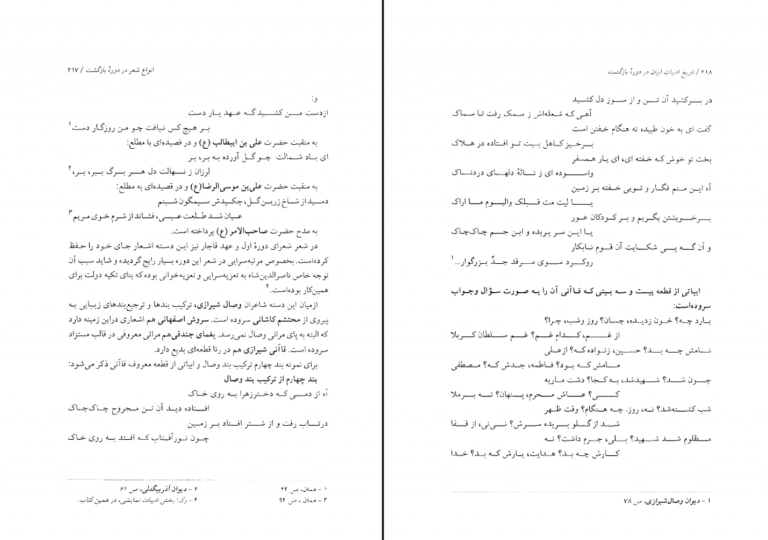 انواع شعر در دورهٔ بازگشت / ۲۱۷
و:
ازدست مـن کشـید گـه عـهد یـار دست
بـر هیچ کس نیافت چـو مـن روزگار دست۱
به منقبت حضرت علی بن ابیطالب (ع) و در قصیده‌ای با مطلع:
ای بـاد شـمالت چـو گـل آورده بـه بـر، بر
لرزان ز نـهالت دل هـر بـرگ ببر، بـر،۲
به منقبت حضرت علی‌بن موسی‌الرضا(ع) و در قصیده‌ای به مطلع:
دمـید از شـاخ زریـن‌گـل، چکیدش سیمگون شبنم
عیـان شـد طـلعت عیـسی، فشـاند از شـرم خـوی مـریم۳
به مدح حضرت صاحب‌الامر (ع) پرداخته است.
در شعر شعرای دورهٔ اول و عهد قاجار نیز این دسته اشعار جای خود را حفظ
کرده‌است. بخصوص مرثیه‌سرایی در شعر این دوره بسیار رایج گردیده و شاید سبب آن
توجه خاص ناصرالدین‌شاه به تعزیه‌سرایی و تعزیه‌خوانی بوده که بنای تکیه دولت برای
همین‌کار بوده‌است.۴
ازمیان این دسته شاعران وصال شیرازی، ترکیب بندها و ترجیع‌بندهای زیبایی به
پیروی از محتشم کاشانی سروده است. سروش اصفهانی هم اشعاری دراین زمینه دارد
که البته به پای مراثی وصال نمی‌رسد. یغمای جندقی‌هم مراثی معروفی در قالب مستزاد
سروده است. قاآنی شیرازی هم در رثا قطعه‌ای بدیع دارد.
برای نمونه بند چهارم ترکیب بند وصال و ابیاتی از قطعه معروف قاآنی ذکر می‌شود:
بند چهارم از ترکیب بند وصال
آه از دمـی کـه دخـترزهرا بـه روی خـاک
افـتاده دیـد آن تـن مـجروح چـاک‌چـاک
درتـاب رفت و از شـتر افـتاد بـر زمـین
چـون نـورآفـتاب کـه افـتد بـه روی خـاک
۱ - همان، ص ۴۴
۲ - دیوان آذربیگدلی، ص ۶۱
۳ - همان ، ص ۹۴
۴ - رک: بخش ادبیات نمایشی، در همین کتاب.
۲۱۸ / تاریخ ادبیات ایران در دورهٔ بازگشت
در بـرکشید آن تـن و از سـوز دل کشـید
آهـی کـه شـعله‌اش ز سـمک رفت تـا سـماک
گفت ای به خون طپیده نه هنگام خفتن است
بـرخـیز کـاهل بـیت تـو افـتاده در هـلاک
بخت تو خوش که خفته ای، ای یار همسفر
آه ایـن منم فگـار و تـویی خفته بـر زمین
یـا لیت مت قـبلک والیـوم مـا اراک
بـرخـویشتن بگـریم و بـر کـودکان عـور
یـا ایـن سر بـریده و ایـن جـسم چـاک‌چـاک
و آن گـه پـی شکـایت آن قـوم نـابکار
روکـرد سـوی مـرقد جـدّ بـزرگوار...۱
ابیاتی از قطعه بیست و سه بیتی کـه قـاآنی آن را بـه صورت سـؤال وجـواب
سروده‌است:
بـارد چـه؟ خـون زدیـده، چسان؟ روز وشب، چرا؟
از غـم، کـدام غـم؟ غـم سـلطان کـربلا
نـامش چـه بـد؟ حسین، زنـواده کـه؟ ازعـلی
مـامش کـه بـود؟ فـاطمه، جـدش کـه؟ مـصطفی
چـون شـد؟ شـهیدشد، بـه کـجا؟ دشت مـاریه
کـی؟ عـاش مـحرم، پـنهان؟ نـه بـرملا
شب کشـته‌شد؟ نـه، روز. چـه هنگام؟ وقت ظـهر
شـد از گـلو بـریده سـرش؟ نـی‌نی، از قـفا
مـظلوم شـد شـهید؟ بـلی، جـرم داشت؟ نـه
کـارش چـه بـد؟ هـدایت، یـارش کـه بـد؟ خـدا
۱ - دیوان وصال‌شیرازی، ص ۷۸